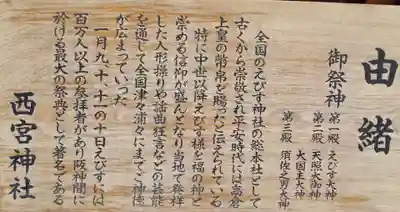 由緒
御祭神
第一殿 えびす大神
第二殿 天照大御神
大国主大神
第三殿 須佐之男大神
全国のえびす神社の総本社として
古くから崇敬され平安時代には高倉
上皇の幣帛を賜ったと伝えられている
特に中世以降えびす様を福の神と
崇める信仰が盛んとなり当地で発祥
した人形操りや謡曲狂言などの芸能
を通して全国津々浦々にまでご神徳
が広まっていった
一月九、十、十一の十日えびすには
百万人以上の参拝者があり阪神間に
於ける最大の祭典として著名である
西宮神社